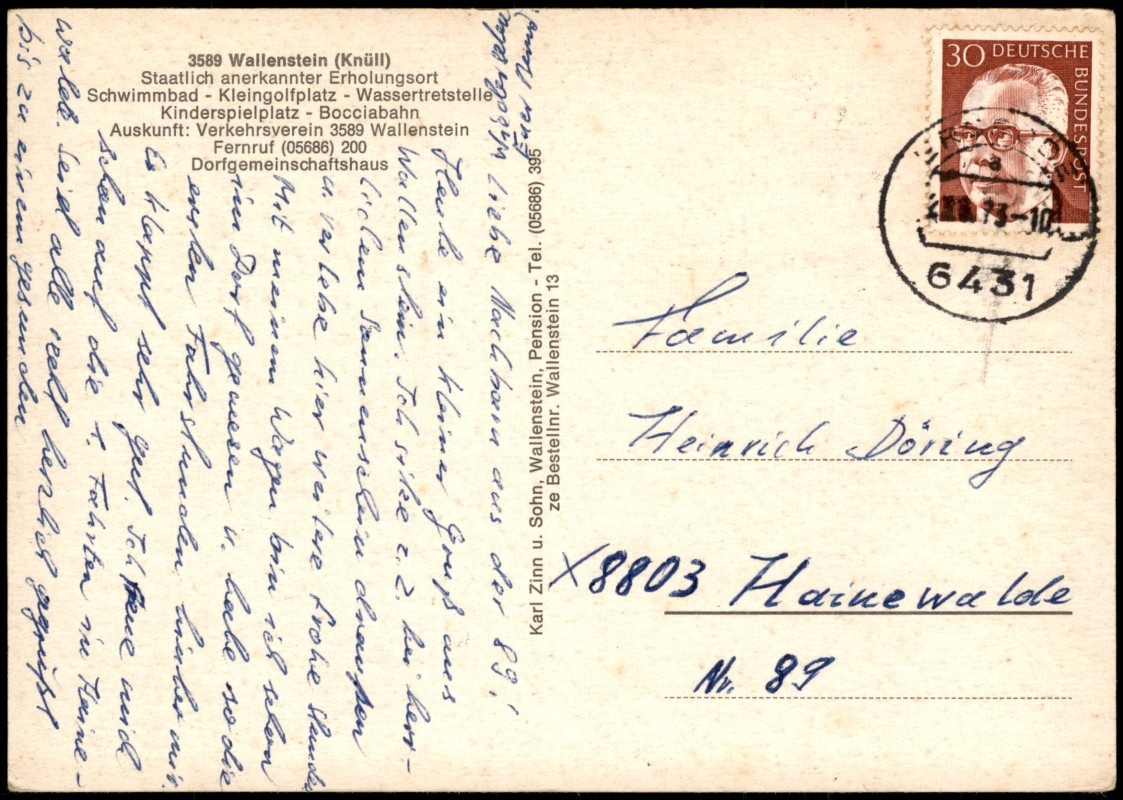 3589 Wallenstein (Knüll)
Staatlich anerkannter Erholungsort
Schwimmbad - Kleingolfplatz - Wassertretstelle
Kinderspielplatz - Bocciabahn
Auskunft: Verkehrsverein 3589 Wallenstein
Fernruf (05686) 200
Dorfgemeinschaftshaus
Liebe Nachbarn aus der 89!
Heute ein kleiner Gruß aus
Wallenstein. Ich sitze z. Z. bei herr-
lichem Sonnenschein draußen
u. verlebe hier weitere frohe Stunden
Mit meinem Wagen bin ich schon
im Dorf gewesen u. habe so die
ersten Fahrstunden hinter mir.
Es klappt sehr gut. Ich freue mich
schon auf die 1. Fahrten in Haine-
walde. Seid alle recht herzlich gegrüßt
bis zu einem gesunden
Karl Zinn u. Sohn, Wallenstein, Pension - Tel. (05686) 395
ze Bestellnr. Wallenstein 13
30 DEUTSCHE
BUNDESPOST
a
73-10
6431
Familie
Heinrich Döring
X8803 Hainewalde
Nr. 89